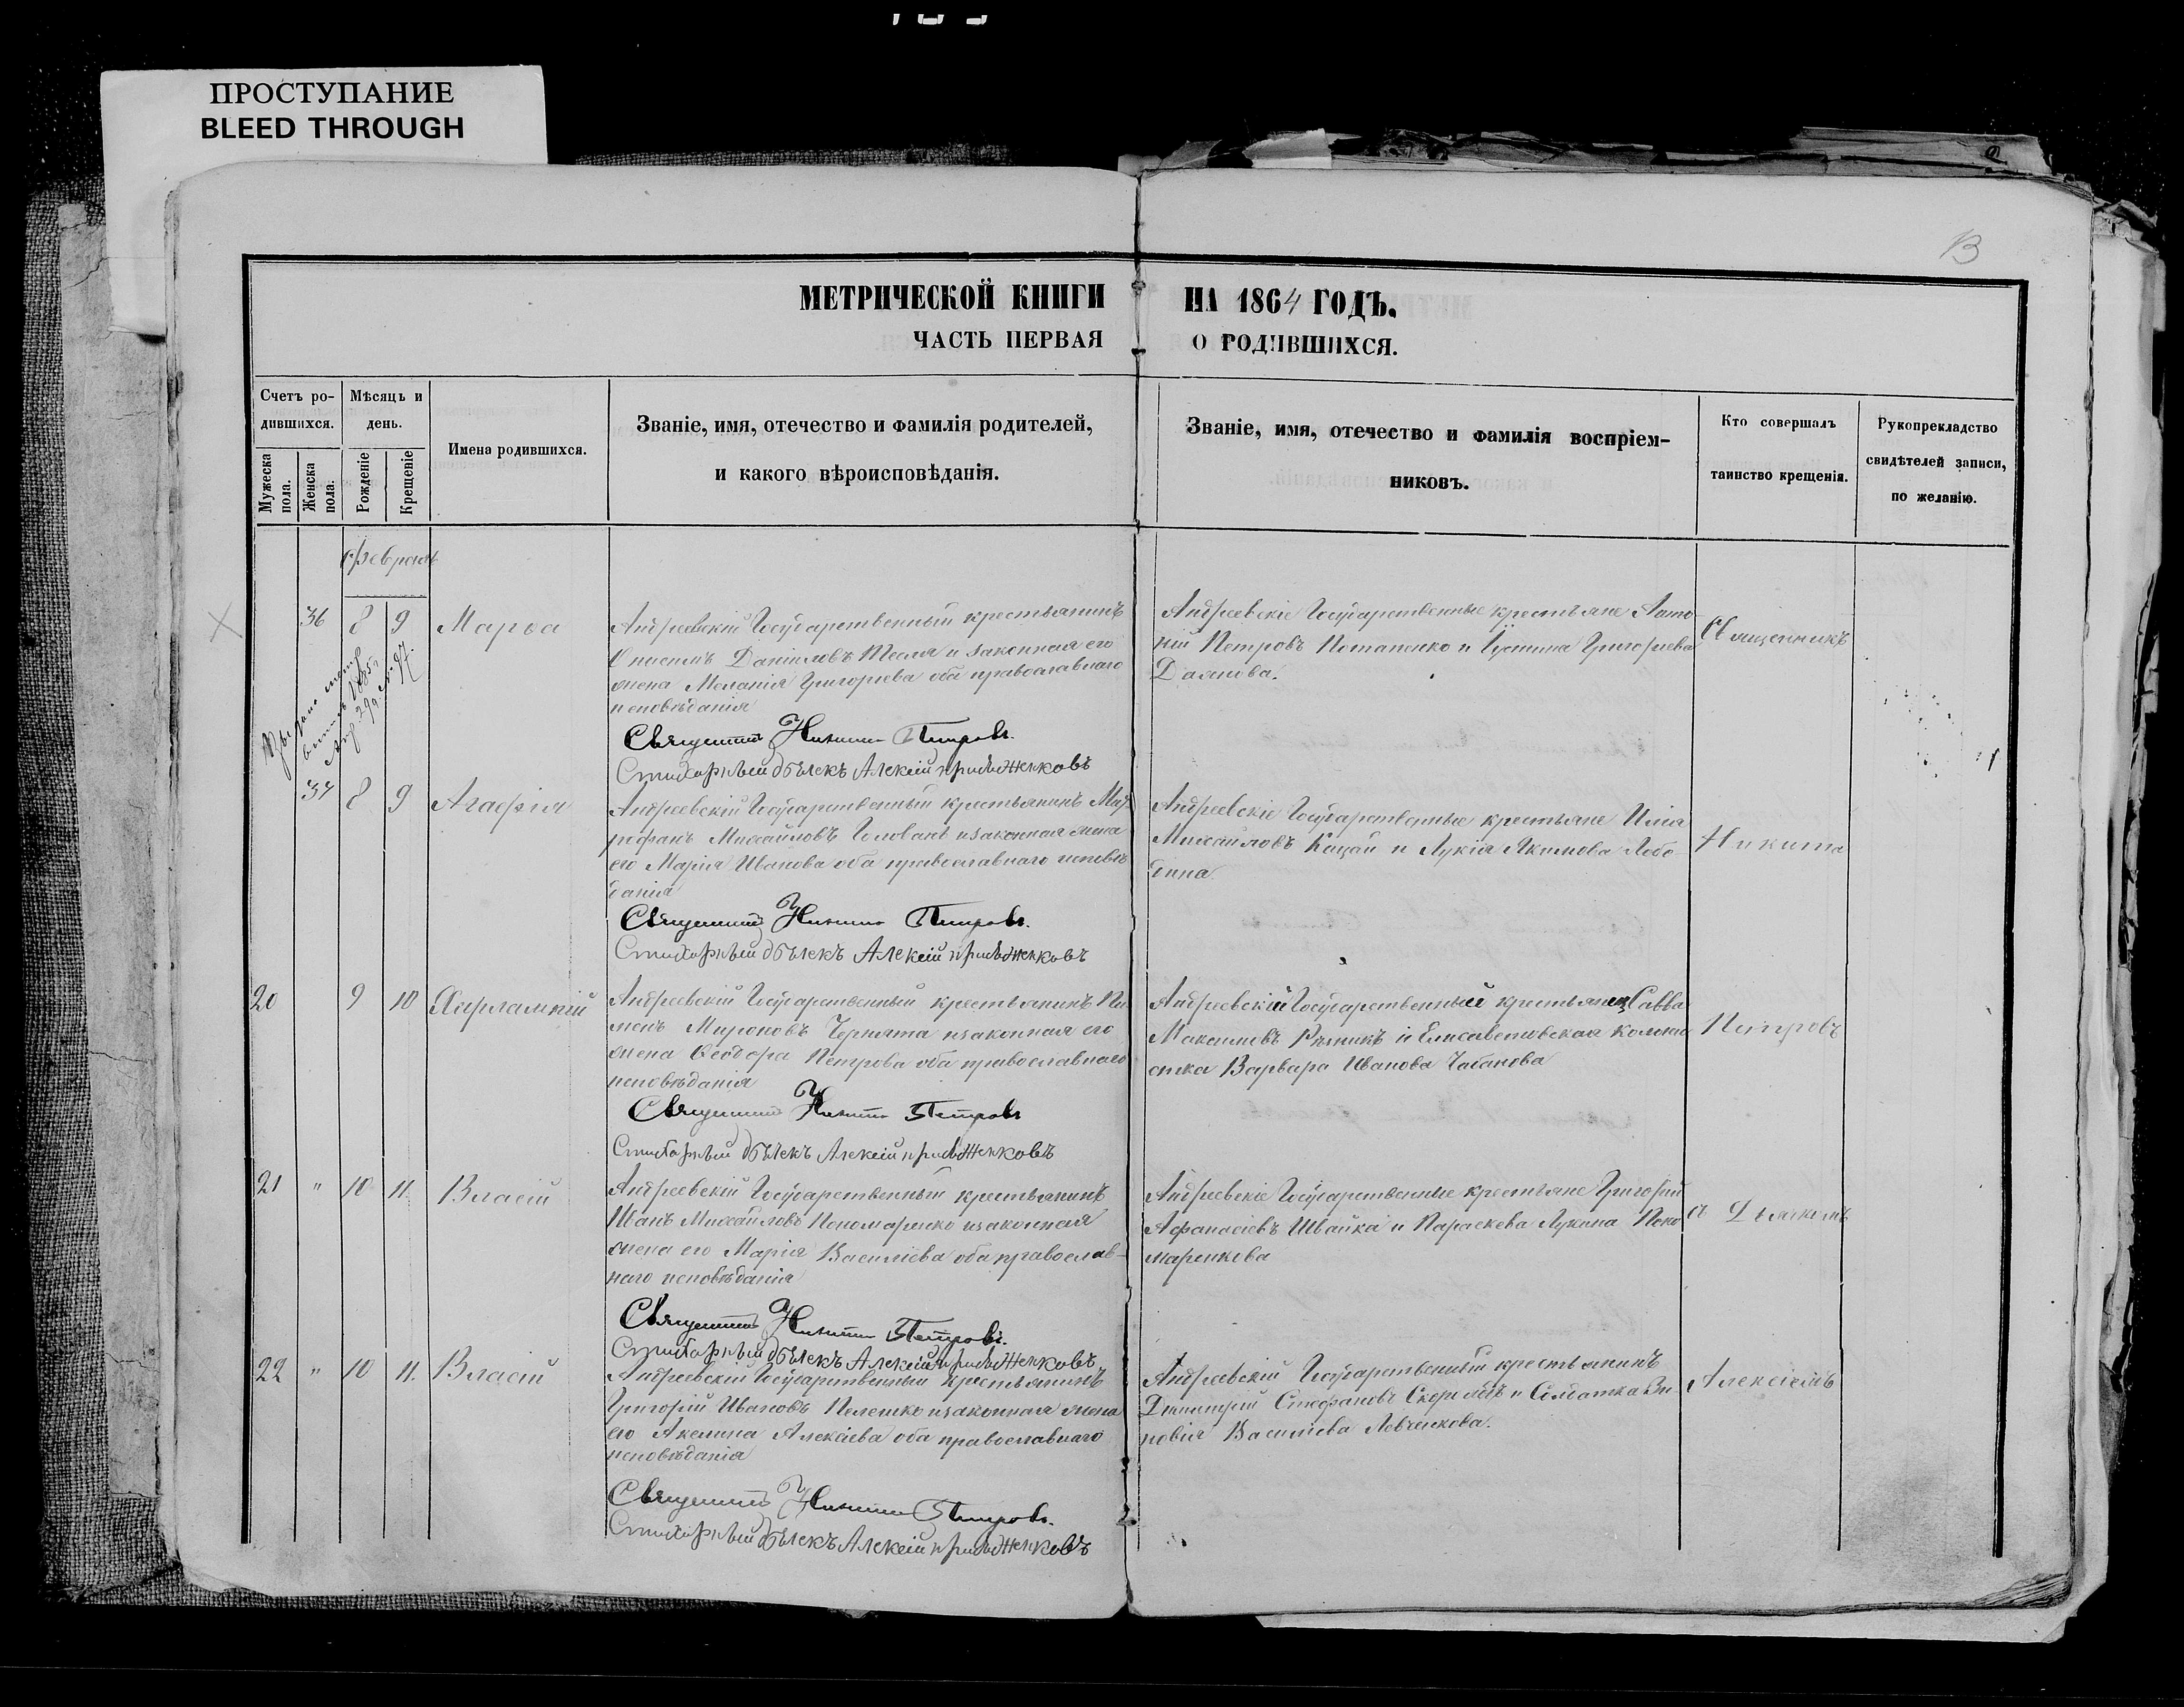 ПРОСТУПАНИЕ
BLEED THROUGH
13
МЕТРИЧЕСКОЙ КНИГИ НА 1864 ГОДЪ.
ЧАСТЬ ПЕРВАЯ О РОДИВШИХСЯ.
Счетъ ро-
дившихся.
Мужеска пола.
Женска пола.
Мѣсяцъ и
день.
Рожденіе
Крещеніе
Имена родившихся.
Званіе, имя, отечество и фамилія родителей,
и какого вѣроисповѣданія.
Званіе, имя, отечество и фамилія воспріем-
никовъ.
Кто совершалъ
таинство крещенія.
Рукоприкладство
свидѣтелей записи,
по желанію.
Февраль
36 8 9 Марѳа
Андреевскій Государственный крестьянинъ
Даніиловъ Тесля и законная его
жена Меланія Григорьева оба православнаго
исповѣданія
Священникъ Никита Петровъ.
Стихарный дьячекъ Алексій
Андреевскіе Государственные крестьяне Анто
ній Петровъ Потапенко и Іустина Григорьева
Священникъ
1885
№ 97.
37 8 9 Агафія
Андреевскій Государственный крестьянинъ Мит
рофанъ Михайловъ Головань и законная жена
его Марія Иванова оба православнаго исповѣ
данія
Священникъ Никита Петровъ.
Стихарный дьячекъ Алексій
Андреевскіе Государственные крестьяне Илія
Михайловъ Кацай и Лукія Якимова Лебе
дина
Никита
20 9 10 Харлампій
Андреевскій Государственный крестьянинъ Пи
менъ Мироновъ Чернята и законная его
жена Ѳеодора Петрова оба православнаго
исповѣданія
Священникъ Никита Петровъ
Стихарный дьячекъ Алексій
Андреевскій Государственный крестьянинъ Савва
Максимовъ Рѣзникъ и Елисаветовская колони
стка Варвара Иванова Чабанова
Петровъ
21 " 10 11. Власій
Андреевскій Государственный крестьянинъ
Иванъ Михайловъ Пономаренко и законная
жена его Марія Василіева оба православ-
наго исповѣданія
Священникъ Никита Петровъ.
Стихарный дьячекъ Алексій
Андреевскіе Государственные крестьяне Григорій
Афанасіевъ Швайка и Параскева Лукина Поно
маренкова
съ Дьячкомъ
22 " 10 11. Власій
Андреевскій Государственный крестьянинъ
Григорій Ивановъ Пелешко и законная жена
его Акелина Алексіева оба православнаго
исповѣданія
Священникъ Никита Петровъ.
Стихарный дьячекъ Алексій
Андреевскій Государственный крестьянинъ
Димитрій Стефановъ и Солдатка Зи
новія Василіева Левченкова.
Алексіемъ